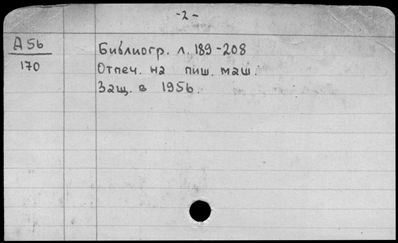 -2-
А56 Библиогр. л. 189-208
170 Отпеч. на пиш. маш.
Защ. в 1956.